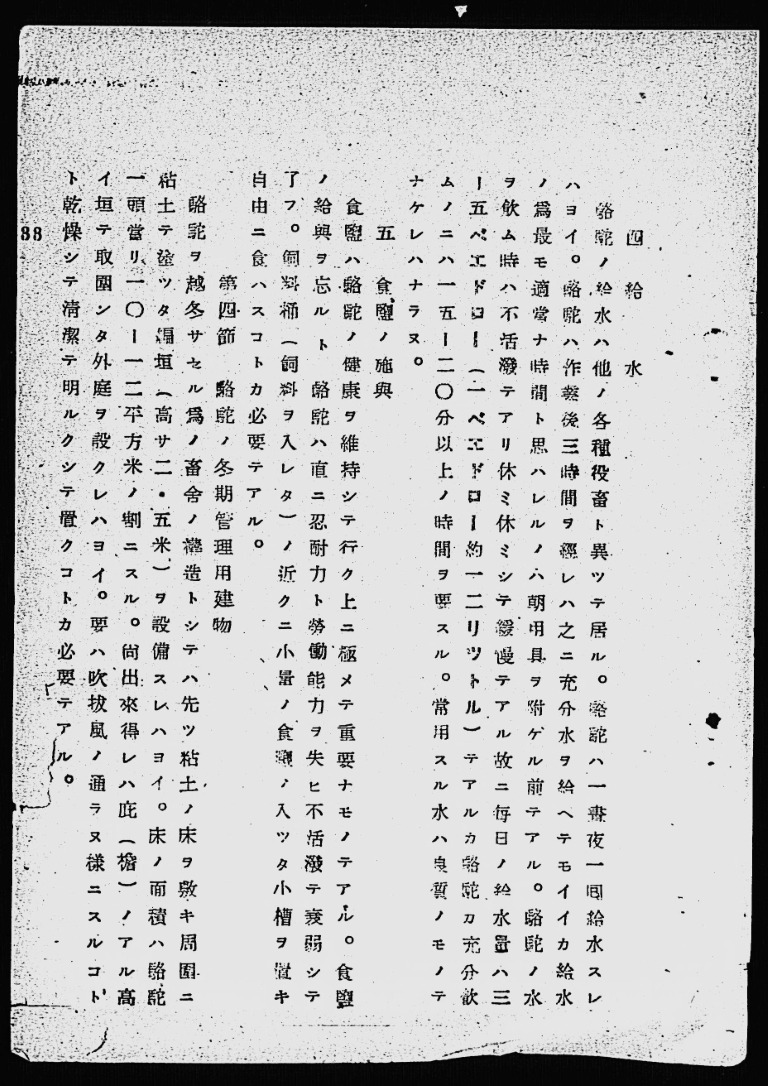 四 給 水
駱駝ノ給水ハ他ノ各種役畜ト異ツテ居ル。駱駝ハ一晝夜一囘給水スレ
ハヨイ。駱駝ハ作業後三時間ヲ經レハ之ニ充分水ヲ給ヘテモイイカ給水
ノ爲最モ適當ナ時間ト思ハレルノハ朝用具ヲ附ケル前テアル。駱駝ノ水
ヲ飮ム時ハ不活潑テアリ休ミ休ミシテ緩慢テアル故ニ毎日ノ給水量ハ三
ー五ペエドロー(一ペエドロー約一二リツトル)テアルカ駱駝カ充分飮
ムノニハ一五ー二〇分以上ノ時間ヲ要スル。常用スル水ハ良質ノモノテ
ナケレハナラヌ。
五 食鹽ノ施與
食鹽ハ駱駝ノ健康ヲ維持シテ行ク上ニ極メテ重要ナモノテアル。食鹽
ノ給與ヲ忘ルト 駱駝ハ直ニ忍耐力ト勞働能力ヲ失ヒ不活潑テ衰弱シテ
了フ。飼料桶(飼料ヲ入レタ)ノ近クニ小量ノ食鹽ノ入ツタ小槽ヲ置キ
自由ニ食ハスコトカ必要テアル。
第四節 駱駝ノ冬期管理用建物
駱駝ヲ越冬サセル爲ノ畜舍ノ構造トシテハ先ツ粘土ノ床ヲ敷キ周圍ニ
粘土テ塗ツタ編垣(高サ二・五米)ヲ設備スレハヨイ。床ノ面積ハ駱駝
一頭當リ一〇ー一二平方米ノ割ニスル。尚出來得レハ庇(檐)ノアル高
イ垣テ取圍ンタ外庭ヲ設クレハヨイ。要ハ吹拔風ノ通ラヌ樣ニスルコト
ト乾燥シテ清潔テ明ルクシテ置クコトカ必要テアル。
88